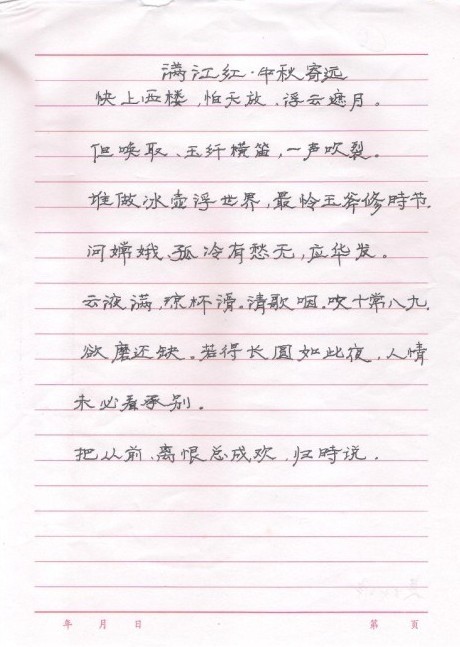 满江红·中秋寄远
快上西楼，怕天放、浮云遮月。
但唤取、玉纤横笛，一声吹裂。
谁做冰壶浮世界，最怜玉斧修時节，
河嫦娥、孤冷有愁无，应华发。
云液满，琼杯滑。清歌咽。叹十常八九，
欲磨还缺。若得长圆如此夜，人情
未必看承别。
把从前、离恨总成欢，归時说。
年 月 日 第 页